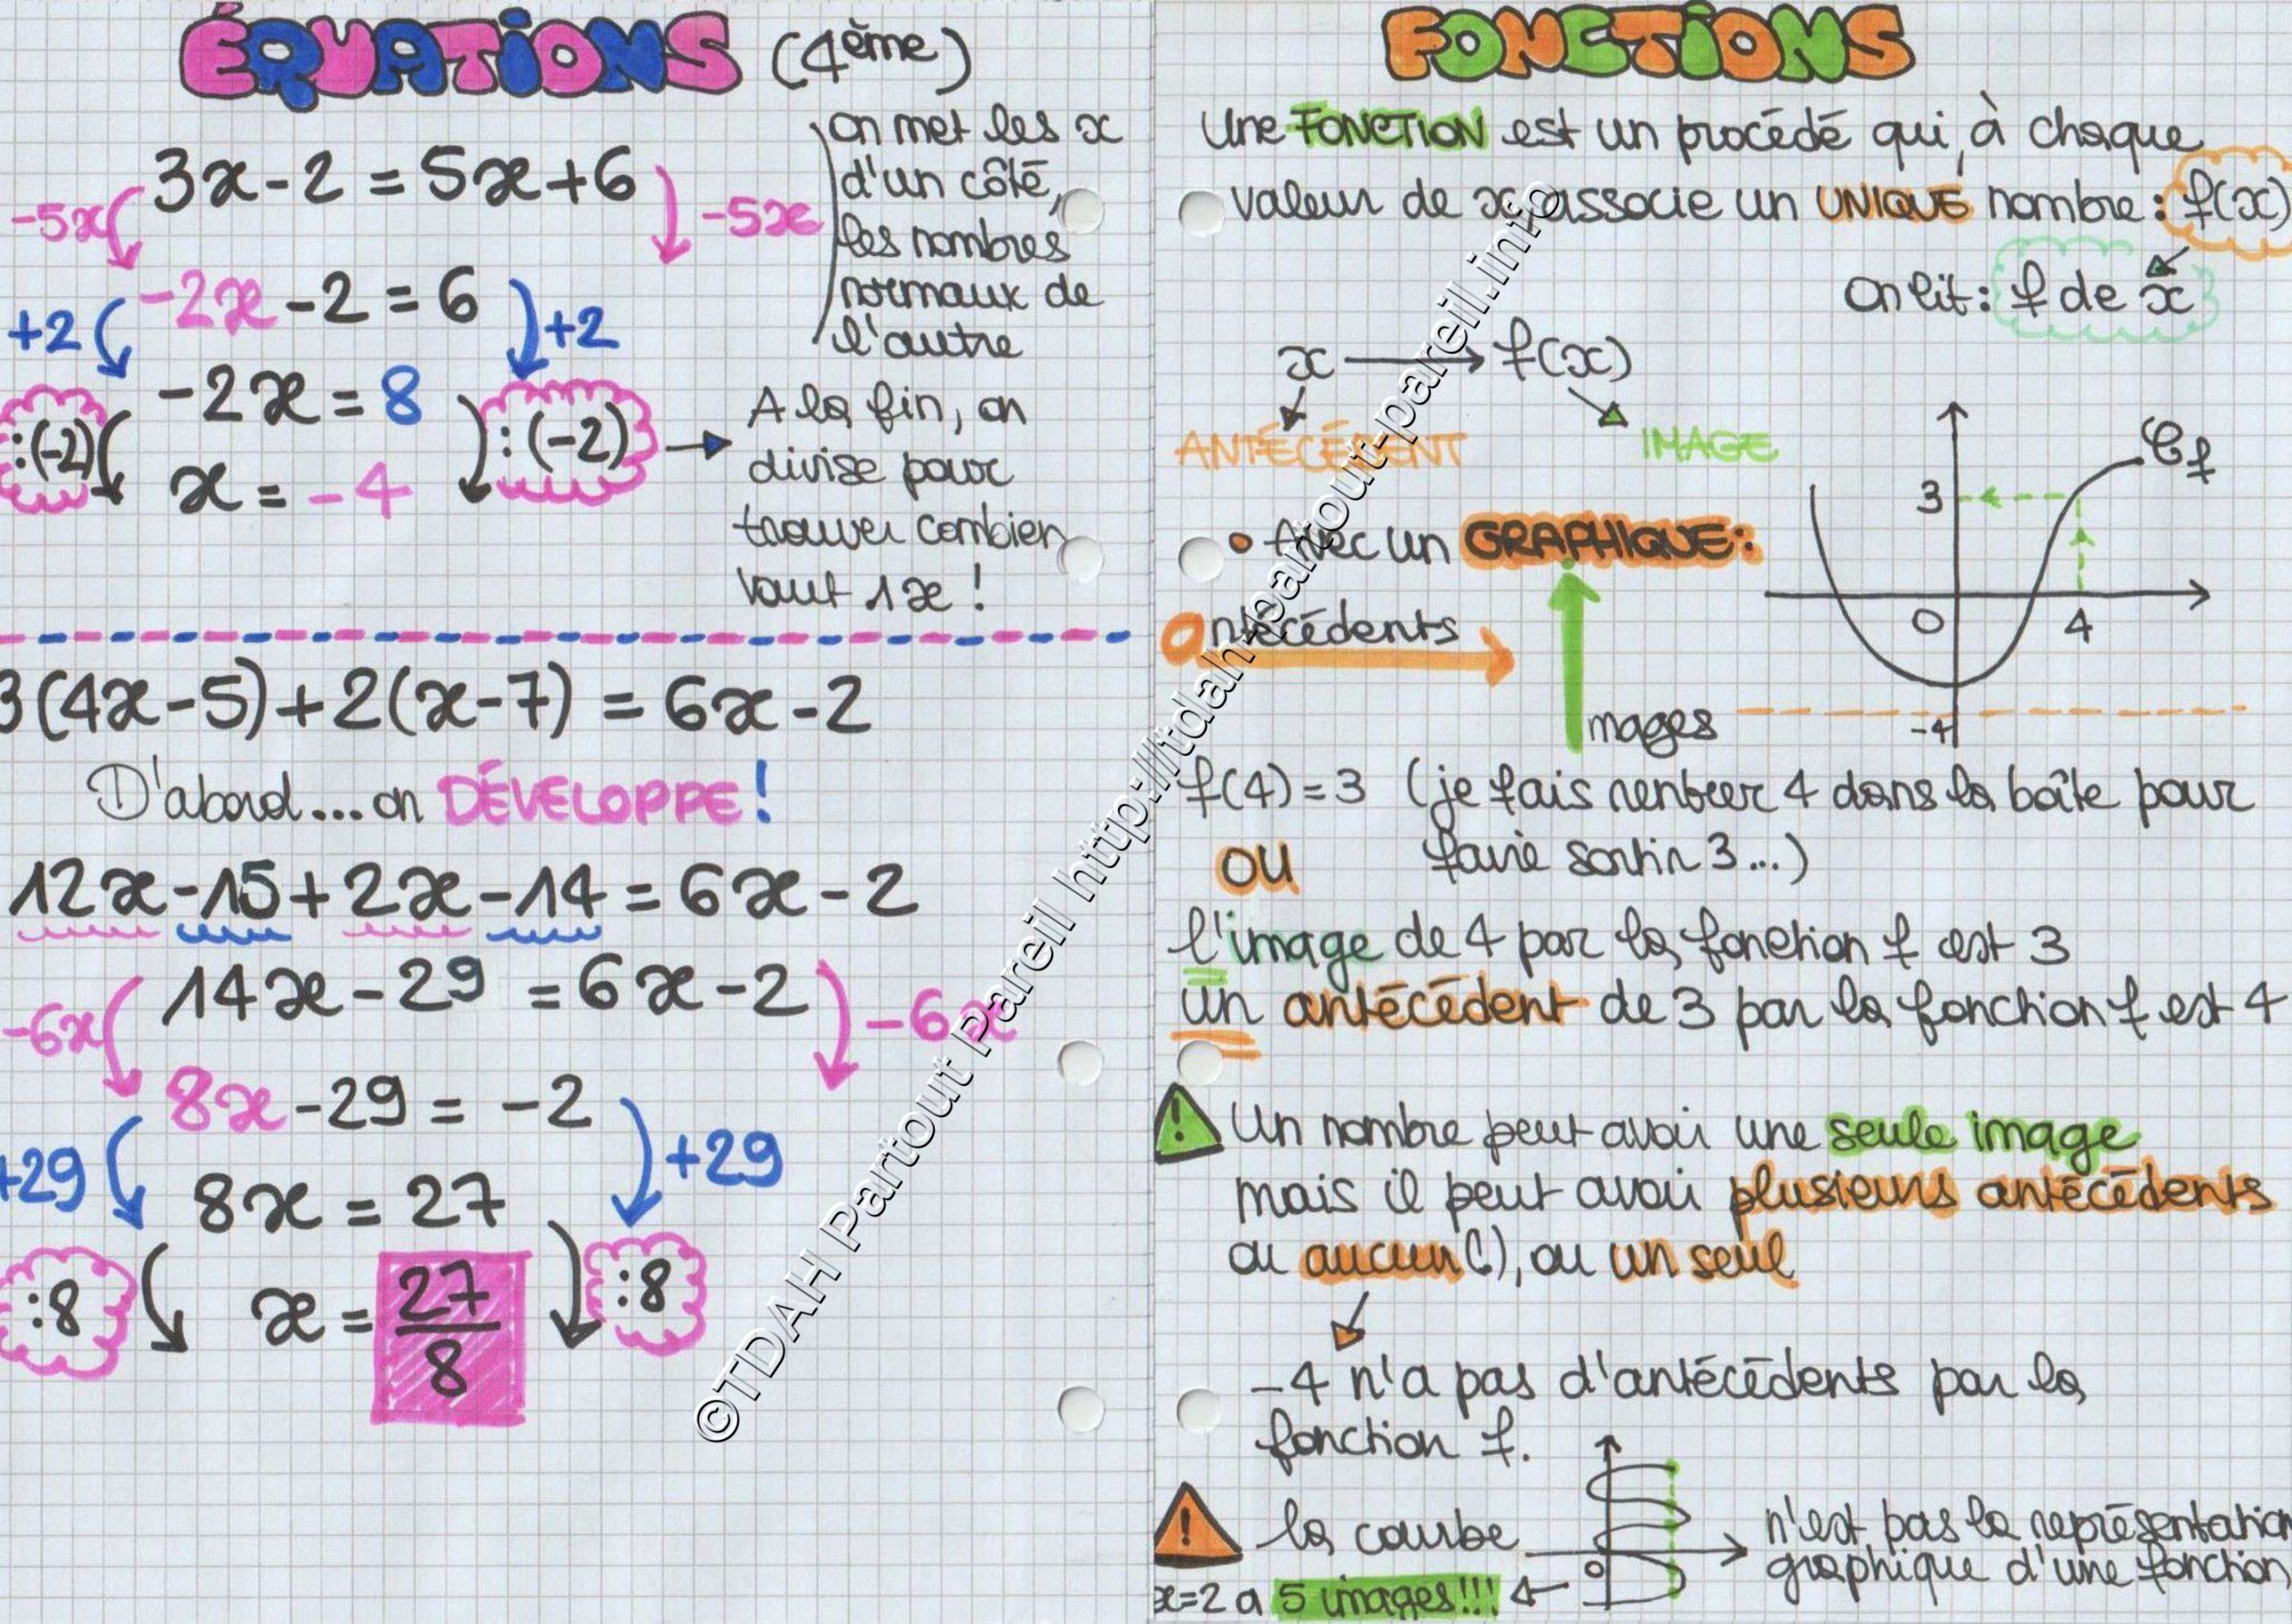 ÉQUATIONS (4ème)
3x-2 = 5x+6
-5x
-5x
on met les x
d'un côté,
les nombres
normaux de
l'autre
-2x-2 = 6
+2
+2
-2x = 8
:(-2)
:(-2)
A la fin, on
divise pour
trouver combien
vaut 1x !
x = -4
3(4x-5)+2(x-7) = 6x-2
D'abord...on DÉVELOPPE!
12x-15+2x-14 = 6x-2
14x-29 = 6x-2
-6x
-6x
8x-29 = -2
+29
+29
8x = 27
:8
:8
x = 27/8
FONCTIONS
Une FONCTION est un procédé qui, à chaque
valeur de x, associe un UNIQUE nombre : f(x)
On lit : f de x
x → f(x)
ANTÉCÉDENT
IMAGE
• Avec un GRAPHIQUE:
antécédents
mages
Cf
3
0
4
-4
f(4)=3 (je fais rentrer 4 dans la boîte pour
faire sortir 3...)
OU
l'image de 4 par la fonction f est 3
un antécédent de 3 par la fonction f est 4
! Un nombre peut avoir une seule image
mais il peut avoir plusieurs antécédents
ou aucun (!), ou un seul
-4 n'a pas d'antécédents par la
fonction f.
! la courbe
0
n'est pas la représentation
graphique d'une fonction
x=2 a 5 images!!!
©TDAH Partout Pareil http://tdah-partout-pareil.info